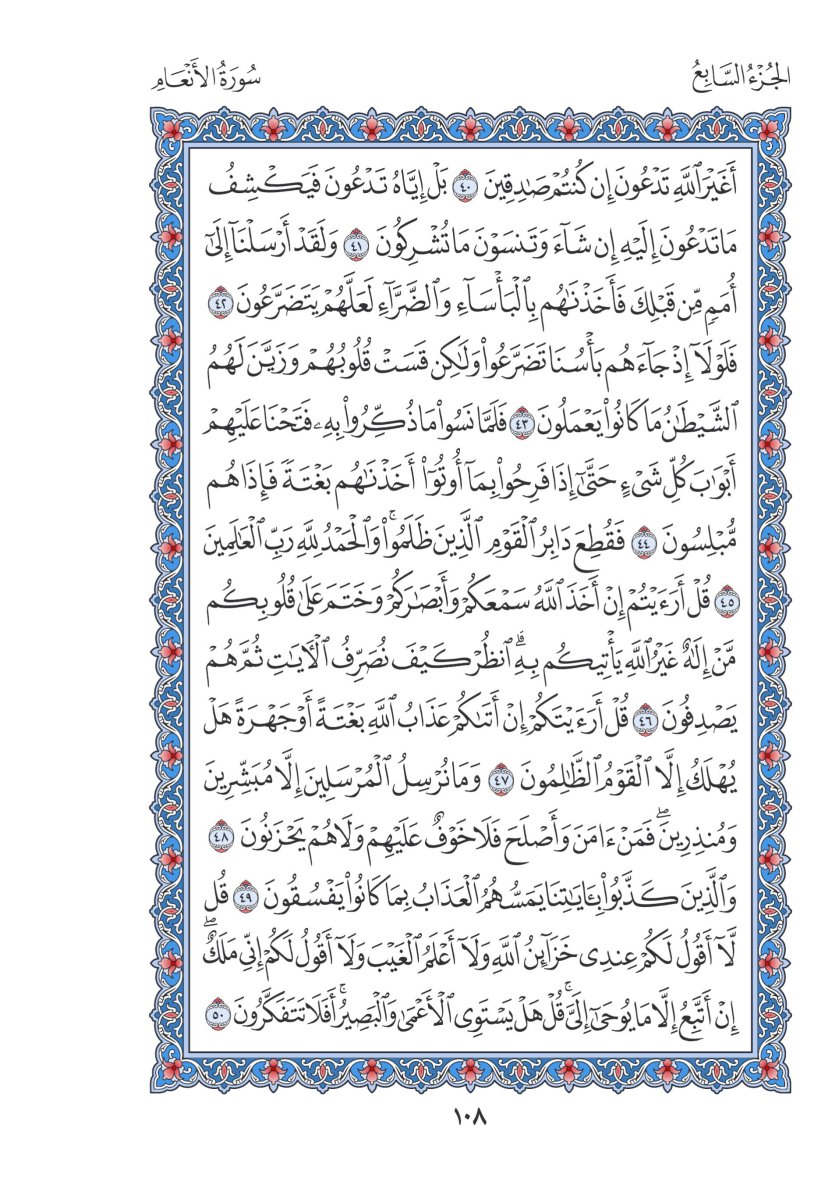 الجُزْءُ السَّابِعُ
سُورَةُ الأَنْعَامِ
أَغَيْرَ ٱللَّهِ تَدْعُونَ إِن كُنتُمْ صَٰدِقِينَ ٤٠ بَلْ إِيَّاهُ تَدْعُونَ فَيَكْشِفُ
مَا تَدْعُونَ إِلَيْهِ إِن شَآءَ وَتَنسَوْنَ مَا تُشْرِكُونَ ٤١ وَلَقَدْ أَرْسَلْنَآ إِلَىٰٓ
أُمَمٍ مِّن قَبْلِكَ فَأَخَذْنَٰهُم بِٱلْبَأْسَآءِ وَٱلضَّرَّآءِ لَعَلَّهُمْ يَتَضَرَّعُونَ ٤٢
فَلَوْلَآ إِذْ جَآءَهُم بَأْسُنَا تَضَرَّعُوا۟ وَلَٰكِن قَسَتْ قُلُوبُهُمْ وَزَيَّنَ لَهُمُ
ٱلشَّيْطَٰنُ مَا كَانُوا۟ يَعْمَلُونَ ٤٣ فَلَمَّا نَسُوا۟ مَا ذُكِّرُوا۟ بِهِۦ فَتَحْنَا عَلَيْهِمْ
أَبْوَٰبَ كُلِّ شَىْءٍ حَتَّىٰٓ إِذَا فَرِحُوا۟ بِمَآ أُوتُوٓا۟ أَخَذْنَٰهُم بَغْتَةً فَإِذَا هُم
مُّبْلِسُونَ ٤٤ فَقُطِعَ دَابِرُ ٱلْقَوْمِ ٱلَّذِينَ ظَلَمُوا۟ۚ وَٱلْحَمْدُ لِلَّهِ رَبِّ ٱلْعَٰلَمِينَ
٤٥ قُلْ أَرَءَيْتُمْ إِنْ أَخَذَ ٱللَّهُ سَمْعَكُمْ وَأَبْصَٰرَكُمْ وَخَتَمَ عَلَىٰ قُلُوبِكُم
مَّنْ إِلَٰهٌ غَيْرُ ٱللَّهِ يَأْتِيكُم بِهِۗ ٱنظُرْ كَيْفَ نُصَرِّفُ ٱلْءَايَٰتِ ثُمَّ هُمْ
يَصْدِفُونَ ٤٦ قُلْ أَرَءَيْتَكُمْ إِنْ أَتَىٰكُمْ عَذَابُ ٱللَّهِ بَغْتَةً أَوْ جَهْرَةً هَلْ
يُهْلَكُ إِلَّا ٱلْقَوْمُ ٱلظَّٰلِمُونَ ٤٧ وَمَا نُرْسِلُ ٱلْمُرْسَلِينَ إِلَّا مُبَشِّرِينَ
وَمُنذِرِينَۖ فَمَنْ ءَامَنَ وَأَصْلَحَ فَلَا خَوْفٌ عَلَيْهِمْ وَلَا هُمْ يَحْزَنُونَ ٤٨
وَٱلَّذِينَ كَذَّبُوا۟ بِـَٔايَٰتِنَا يَمَسُّهُمُ ٱلْعَذَابُ بِمَا كَانُوا۟ يَفْسُقُونَ ٤٩ قُل
لَّآ أَقُولُ لَكُمْ عِندِى خَزَآئِنُ ٱللَّهِ وَلَآ أَعْلَمُ ٱلْغَيْبَ وَلَآ أَقُولُ لَكُمْ إِنِّى مَلَكٌۖ
إِنْ أَتَّبِعُ إِلَّا مَا يُوحَىٰٓ إِلَىَّۚ قُلْ هَلْ يَسْتَوِى ٱلْأَعْمَىٰ وَٱلْبَصِيرُۚ أَفَلَا تَتَفَكَّرُونَ ٥٠
١٠٨